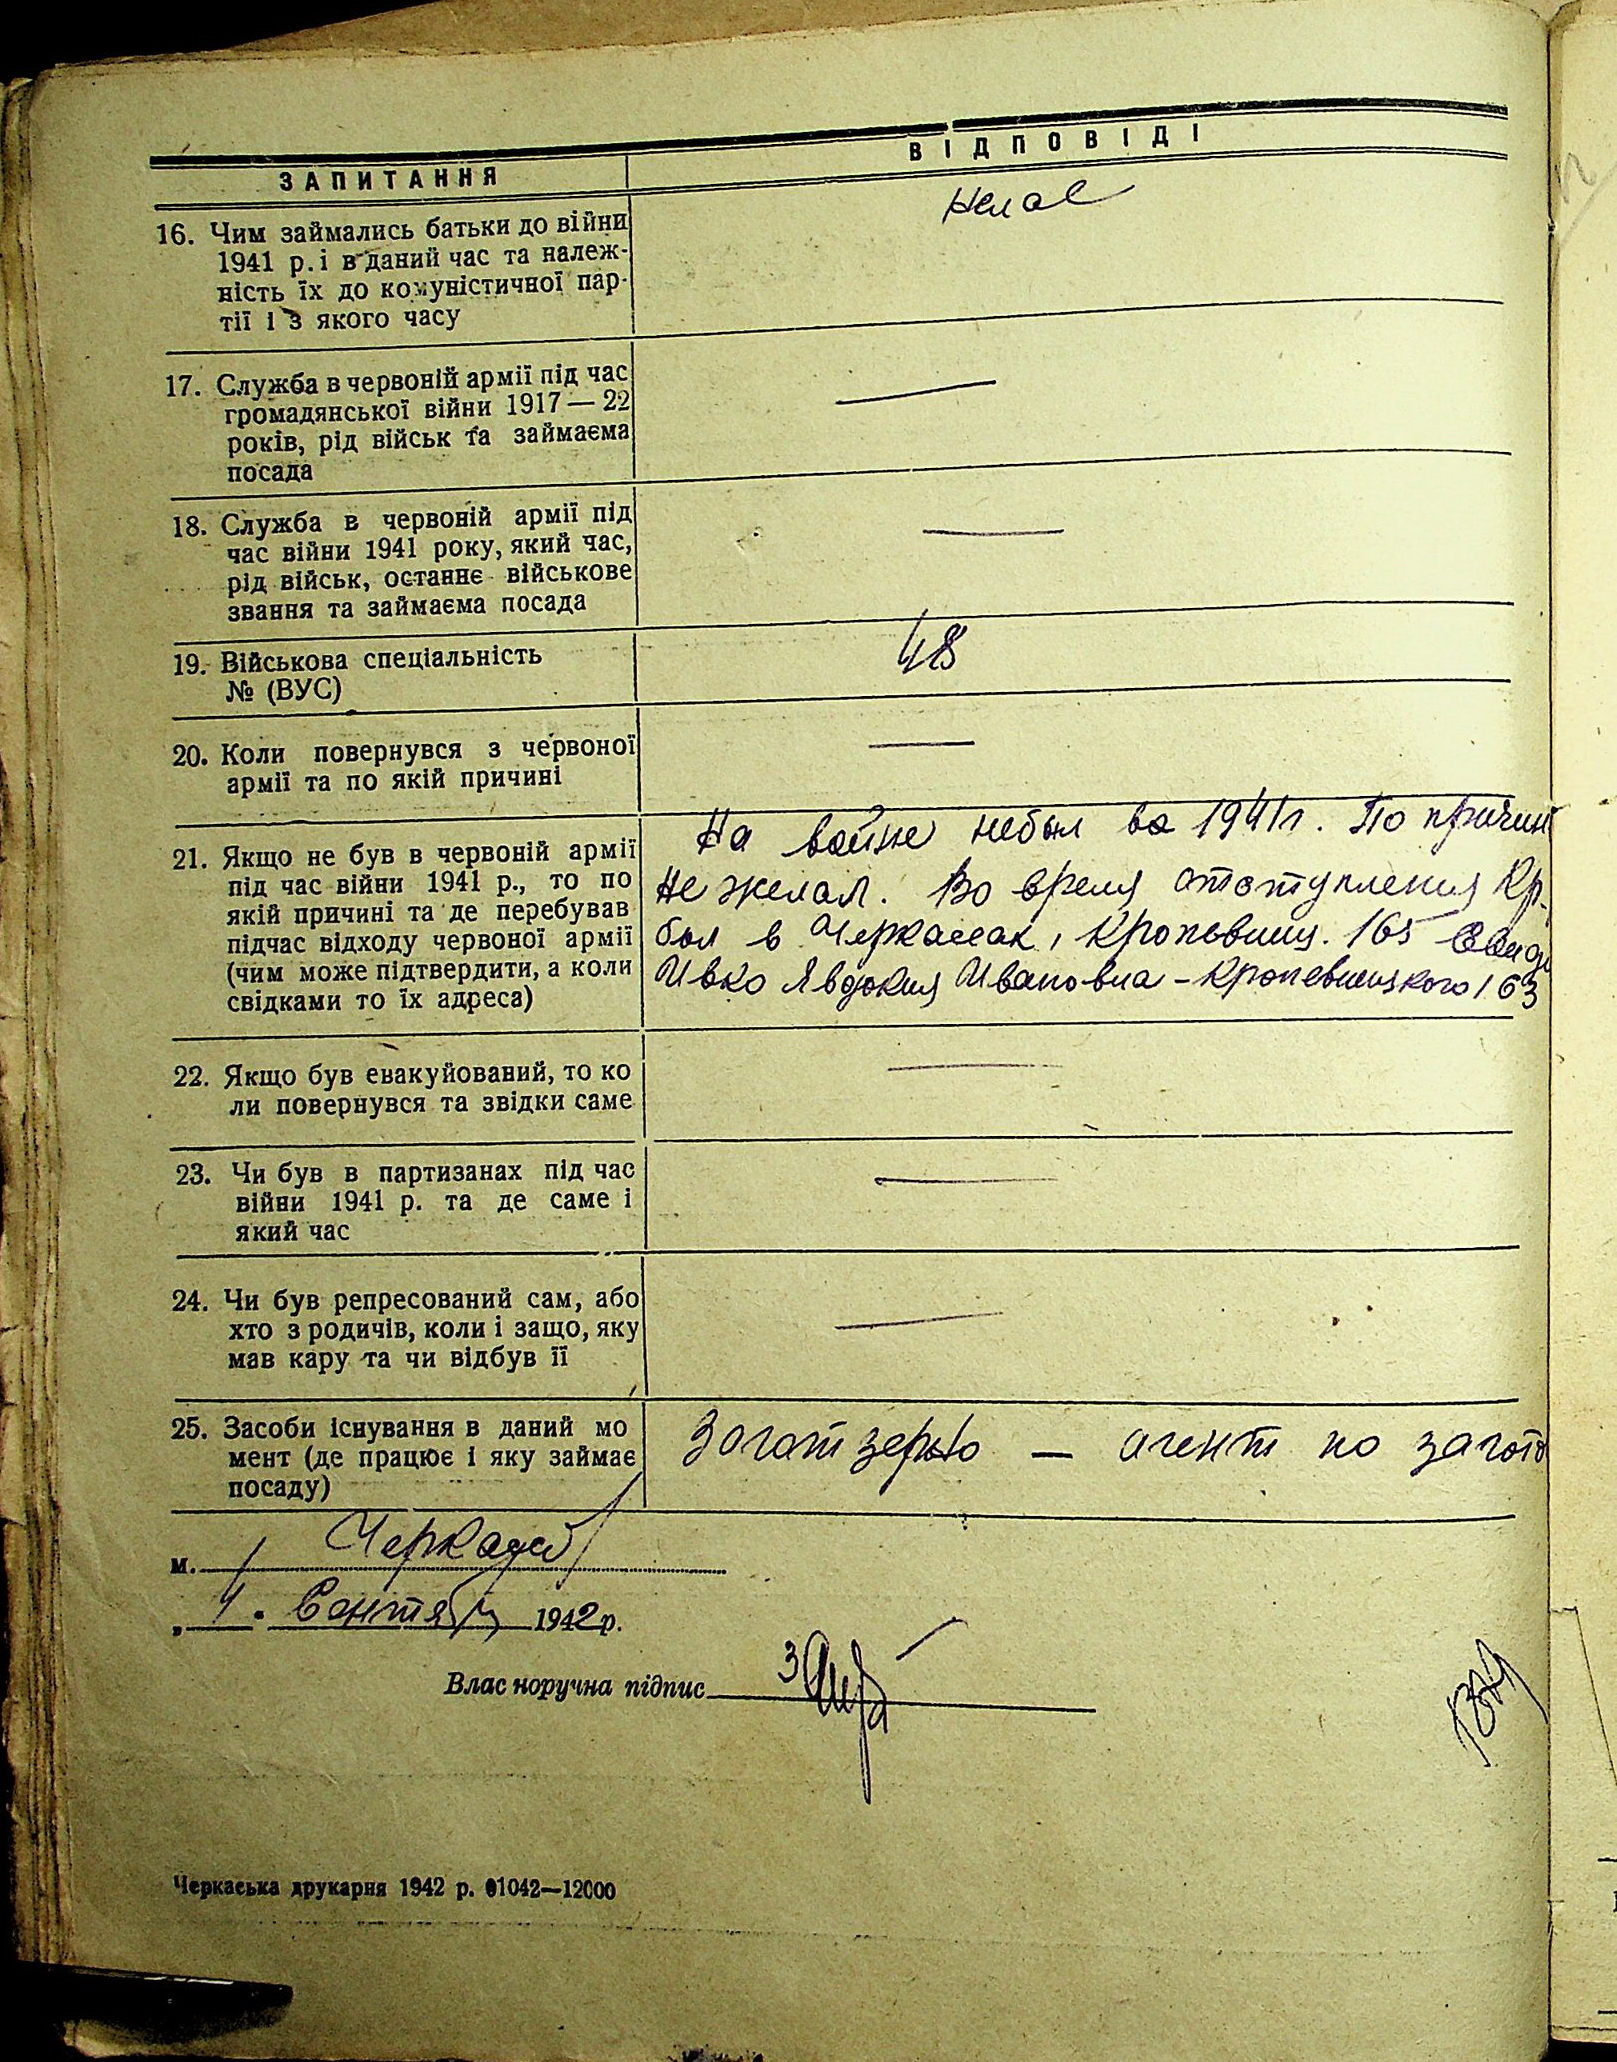 ЗАПИТАННЯ
ВІДПОВІДІ
16. Чим займались батьки до війни
1941 р. і в даний час та належ-
ність їх до комуністичної пар-
тії і з якого часу
17. Служба в червоній армії під час
громадянської війни 1917 — 22
років, рід військ та займаєма
посада
—
18. Служба в червоній армії під
час війни 1941 року, який час,
рід військ, останнє військове
звання та займаєма посада
—
19. Військова спеціальність
№ (ВУС)
48
20. Коли повернувся з червоної
армії та по якій причині
—
21. Якщо не був в червоній армії
під час війни 1941 р., то по
якій причині та де перебував
підчас відходу червоної армії
(чим може підтвердити, а коли
свідками то їх адреса)
На войне небыл во 1941 г. По причин
не желал. Во время отступления Кр.
был в Черкассах, Кропевниц. 165
Ивко Явдокия Ивановна - Кропевницкого 163
22. Якщо був евакуйований, то ко
ли повернувся та звідки саме
—
23. Чи був в партизанах під час
війни 1941 р. та де саме і
який час
—
24. Чи був репресований сам, або
хто з родичів, коли і защо, яку
мав кару та чи відбув її
—
25. Засоби існування в даний мо
мент (де працює і яку займає
посаду)
Заготзерно — агент по загот
м. Черкассы
„ 1 " Сентября 1942 р.
Власноручна підпис
Черкаська друкарня 1942 р. 01042—12000